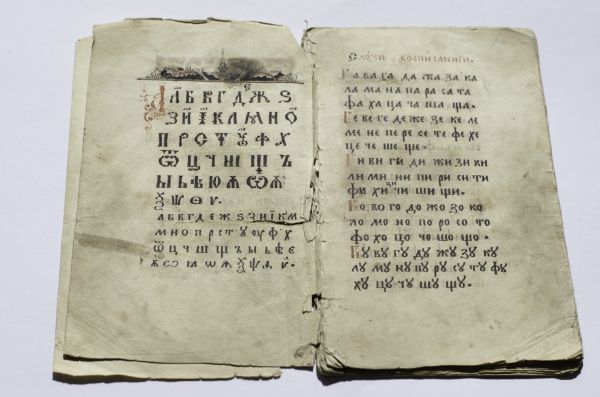 А Б В Г Д Є Ж Ѕ
З И Ї К Л М Н О
П Р С Т Ꙋ Ф Х
Ѿ Ц Ч Ш Щ Ъ
Ы Ь Ѣ Ю Ѧ
Ѯ Ѱ Ѳ Ѵ.
А Б В Г Д Е Ж Ѕ З И Ї К М
М Н О П Р С Т Ꙋ ОУ Ф Х
Ѿ Ц Ч Ш Щ Ъ Ы Ь Ѣ Є
Ба ва га да жа за ка
ла ма на па ра са та
фа ха ца ча ша ща.
Бе ве ге де же зе ке ле
ме не пе ре се те фе хе
це че ше ще.
Би ви ги ди жи зи ки
ли ми ни пи ри си ти
фи хи ци чи ши щи.
Бо во го до жо зо ко
ло мо но по ро со то
фо хо цо чо шо що.
Бꙋ вꙋ гꙋ дꙋ жꙋ зꙋ кꙋ
лꙋ мꙋ нꙋ пꙋ рꙋ сꙋ тꙋ фꙋ
хꙋ цꙋ чꙋ шꙋ щꙋ.